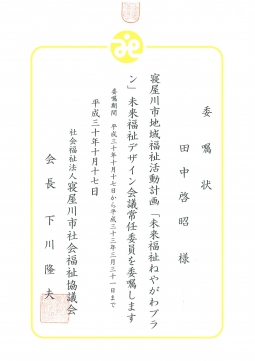 委嘱状
田中啓昭 様
寝屋川市地域福祉活動計画「未来福祉ねやがわプラ
ン」未来福祉デザイン会議常任委員を委嘱します
委嘱期間 平成三十年十月十七日から平成三十三年三月三十一日まで
平成三十年十月十七日
社会福祉法人寝屋川市社会福祉協議会
会長 下川隆夫